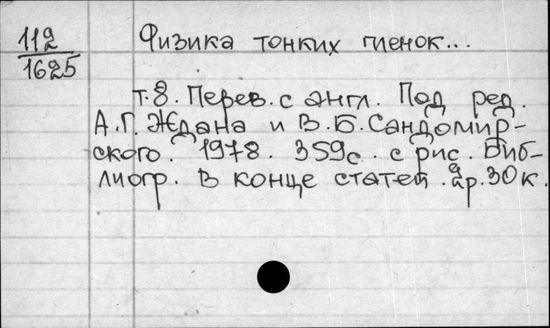 112
1625
Физика тонких пленок...
т.8. Перев. с англ. Под ред.
А.Г. Ждана и В.Б. Сандомир-
ского. 1978. 359с. с рис. Биб-
лиогр. в конце статей. 2р.30к.